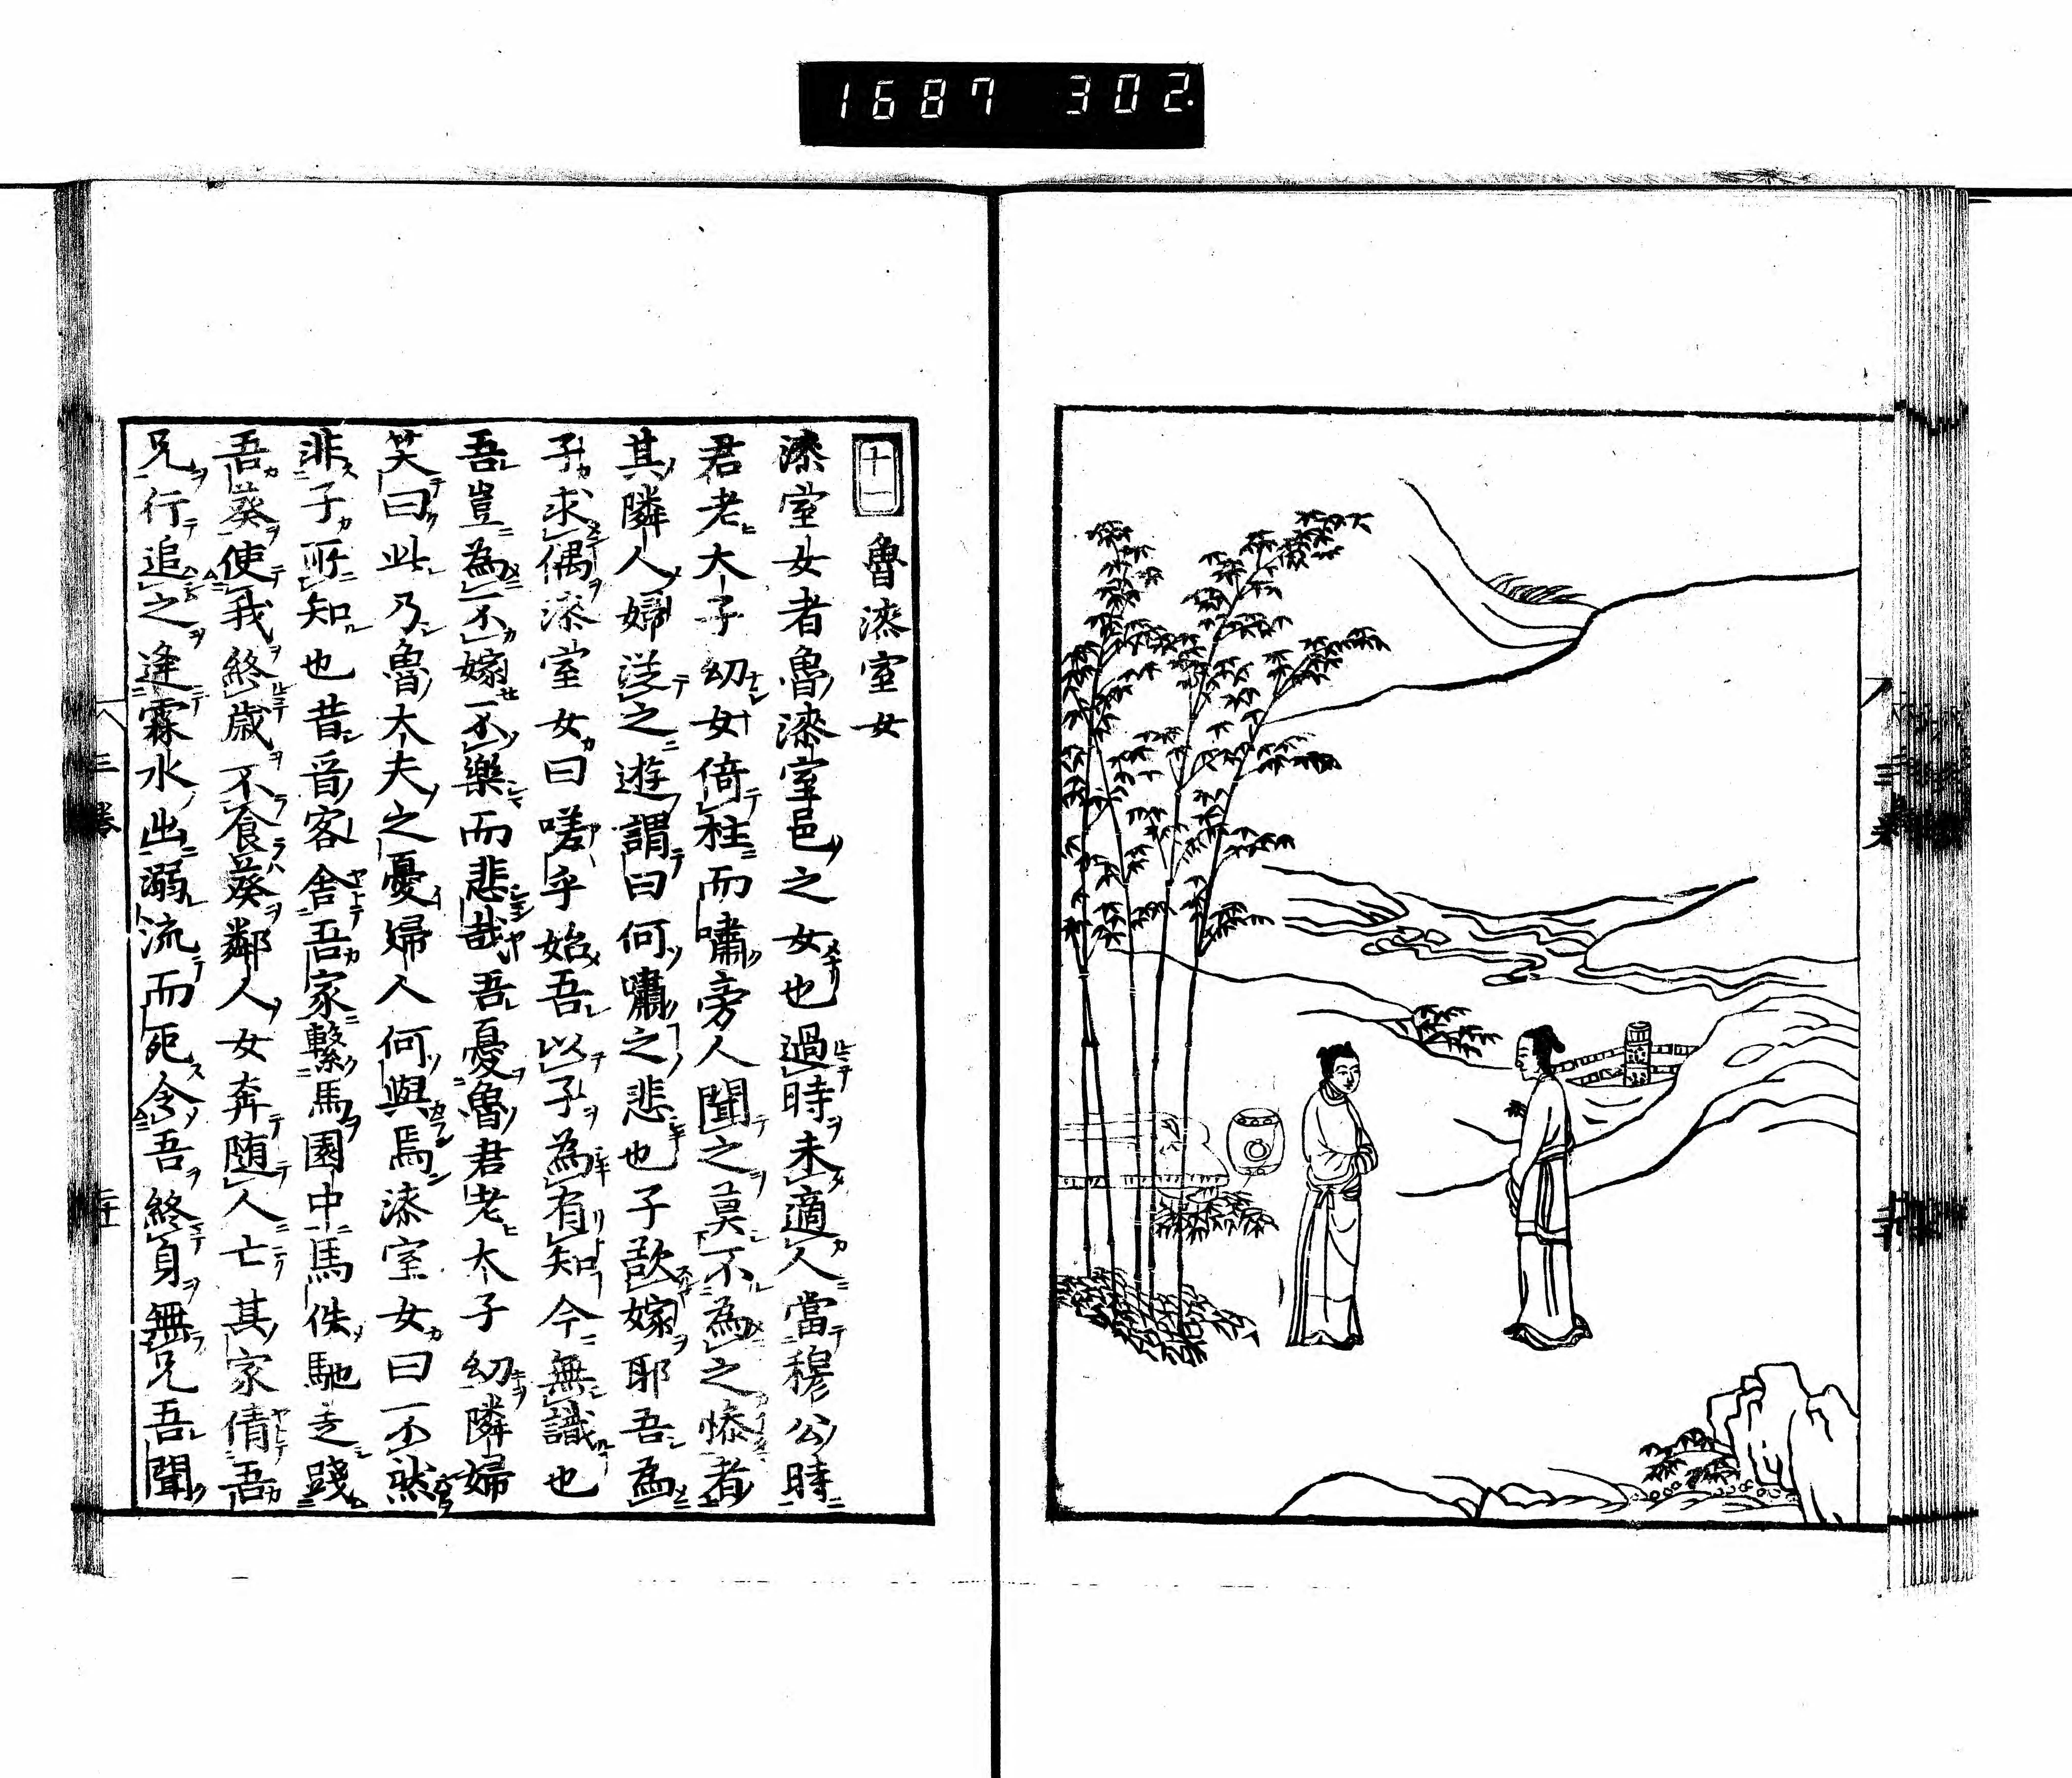 1687 302.
十一 魯漆室女
漆室女者魯漆室邑之女也過時未適人當穆公時
君老大子幼女倚柱而嘯旁人聞之莫不為之慘者
其隣人婦從之遊謂曰何嘯之悲也子欲嫁耶吾為
子求偶漆室女曰嗟乎始吾以子為有知今無識也
吾豈為不嫁不樂而悲哉吾憂魯君老太子幼隣婦
笑曰此乃魯大夫之憂婦人何與焉漆室女曰不然
非子所知也昔晉客舎吾家繋馬園中馬佚馳走踐
吾葵使我終歳不食葵鄰人女奔随人亡其家倩吾
兄行追之逢霖水出溺流而死令吾終身無兄吾聞
三巻